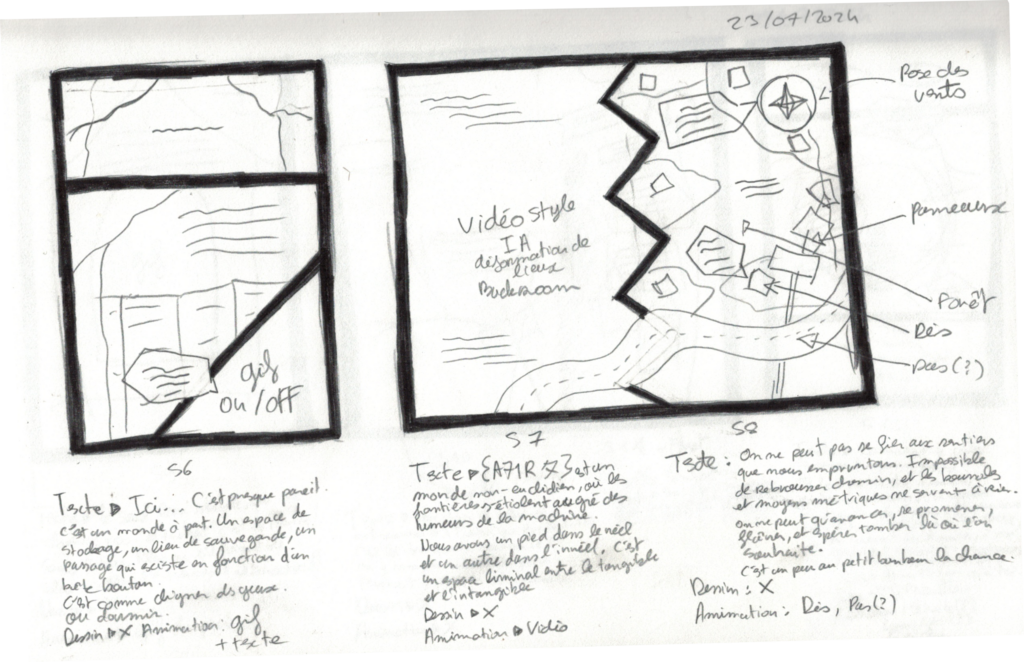 23/07/2024
Rose des
vents
Vidéo style
IA
déformation de
lieux
Backroom
Panneaux
Forêt
Dés
pas(?)
gif
on/off
S6
S7
S8
Texte ▷ Ici... C'est presque pareil.
c'est un monde à part. Un espace de
stockage, un lieu de sauvegarde, un
passage qui existe en fonction d'un
bouton.
C'est comme cligner des yeux.
ou dormir.
Dessin ▷ X Animation: gif
+ texte
Texte ▷ {A71R 文} est un
monde non-euclidien, où les
frontières s'étiolent au gré des
humeurs de la machine.
Nous avons un pied dans le réel
et un autre dans l'irréel. C'est
un espace liminal entre le tangible
et l'intangible
Dessin ▷ X
Animation ▷ Vidéo
Texte : On ne peut pas se fier aux sentiers
que nous empruntons. Impossible
de rebrousser chemin, et les
et moyens métriques ne servent à rien.
on ne peut qu'avancer, se promener,
flâner, et espérer tomber là où l'on
souhaite.
C'est un peu au petit bonheur la chance.
Dessin : X
Animation : Dés, Pas(?)